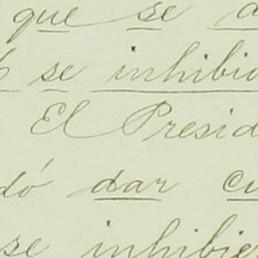 que se a
ó se inhibio
El Presid
dó dar cu
se inhibier